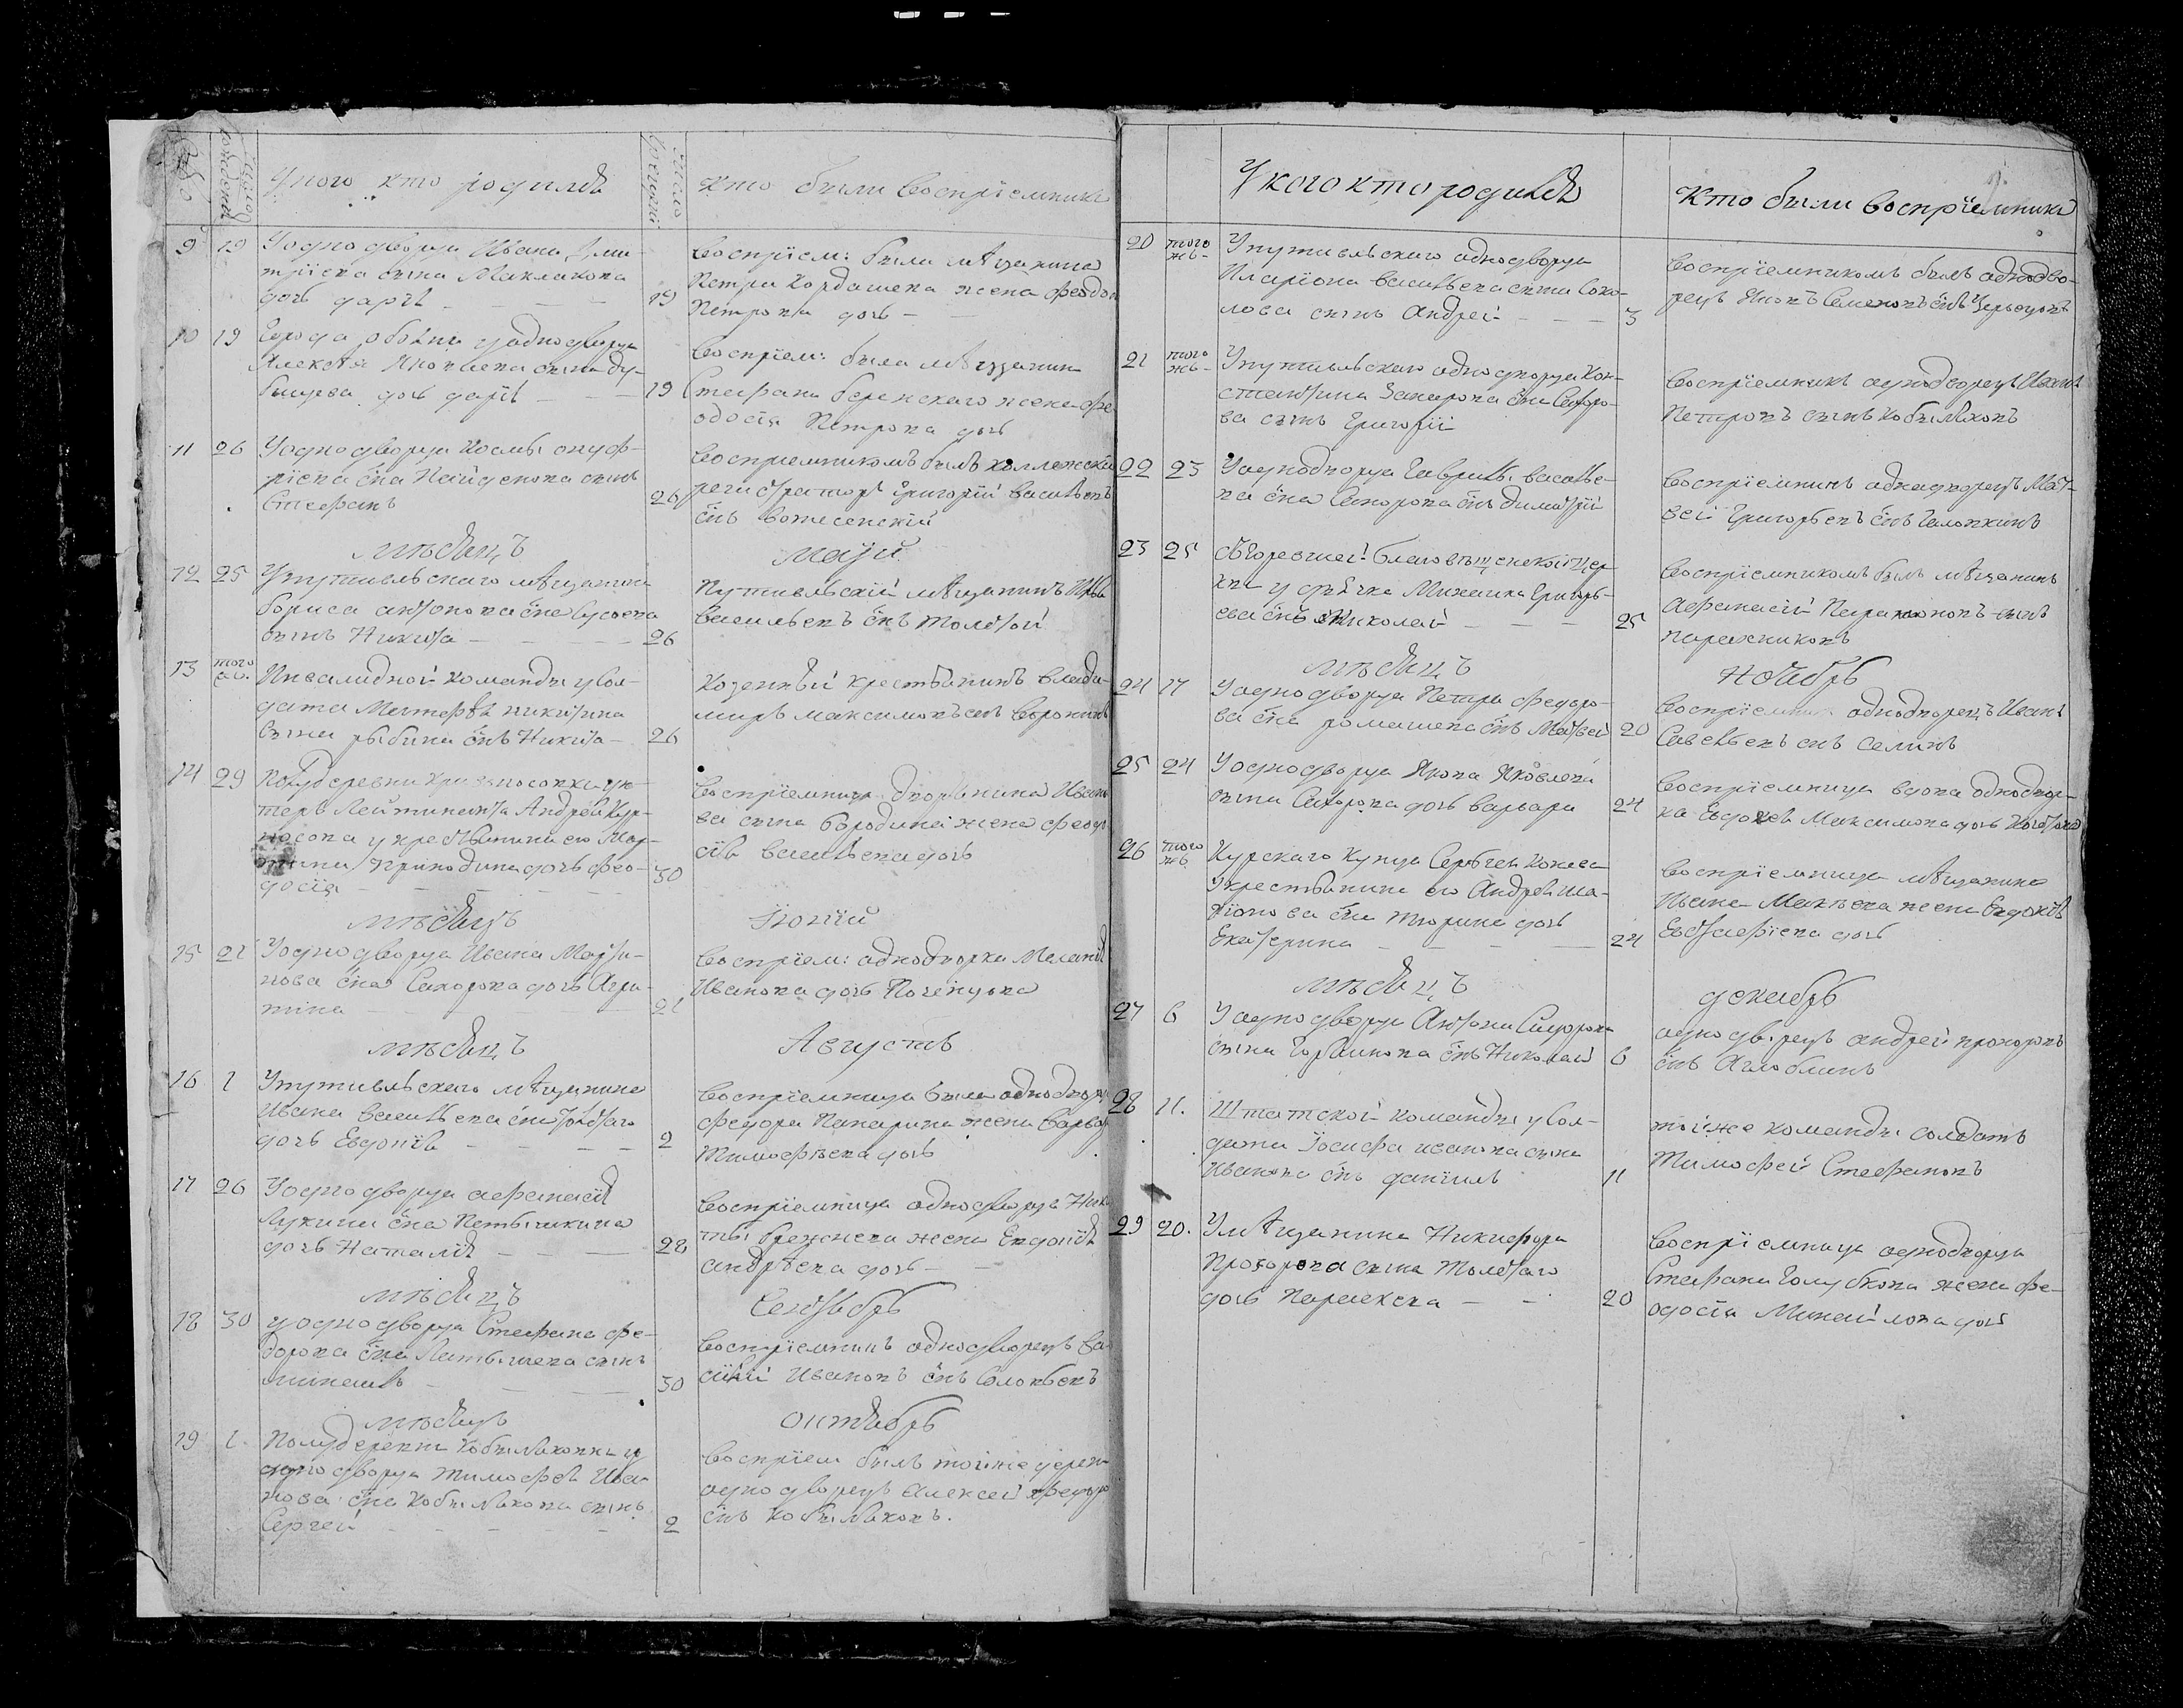 Число рождени
У кого кто родился
Число крещени
Кто были восприемники
9 19 У однодворца Ивана Дми-
трïева сына Маклакова
дочь дарья 19
Воспрïем: была мѣщанина
Петра Кордашева жена феодос
Петрова дочь
10 19 Города Обояни у однодворца
Алексѣя Яковлева сына Ду-
бинцева дочь дарья 19
Воспрïем: была мѣщанин
Стефана беренскаго жена фе
одосïя Петрова дочь
11 26 У однодворца Космы онуф-
рïева сна Найденова сынъ
Стефанъ 26
Воспрïемникомъ былъ коллежски
регистраторъ Григорïй Васильевъ
снъ Вознесенскïй
мѣсяцъ Маïй
12 25 У путивльскаго мѣщанина
бориса антонова сна Сусоева
сынъ Никита 26
Путивльскïй мѣщанинъ
Васильевъ снъ Толстой
13 того жъ Инвалидной команды у сол-
дата Матфѣя никитина
сына рыбина снъ Никита 26
Козенный крестьянинъ влади-
миръ максимовъ снъ Воронинъ
14 29 Помѣст деревни
теръ Лейтинанта Андрея Кур-
носова у крестьянина ево Мар-
тина приходина дочь фео-
досïя 30
Воспрïемница дворянина Ивано
ва сына бородина жена феодо
сïя Васильева дочь
мѣсяцъ Iюнïй
15 21 У однодворца Ивана Марти-
нова сна Сахорова дочь Агри-
пина 21
Воспрïем: однодворка Меланья
Иванова дочь
мѣсяцъ Августъ
16 1 У путивльскаго мѣщанина
Ивана Васильева сна Толстаго
дочь Евдокïя 2
Воспрïемница была однодворц
Федора Пахарина жена Варвар
Тимофѣева дочь
17 26 У однодворца афанасïя
Лукина сна Петышкина
дочь Наталïя 28
Воспрïемница однодворца Ники
ты брежнева жена Евдокïя
андрѣева дочь
мѣсяцъ Сентябрь
18 30 у однодворца Стефана фе-
дорова сна Латышева сынъ
михаилъ 30
Воспрïемникъ однодворецъ Ва
силïй Ивановъ снъ Соловьевъ
мѣсяцъ октябрь
19 1. Полудеревни Кобылякокки у
однодворца тимофея Ива-
нова сна Кобылякова сынъ
Сергей 2
Воспрïем былъ тоиже дерев
однодворецъ Алексей федоро
снъ Кобыляковъ.
У кого кто родился
Кто были воспрïемники
20 того жъ - У путивльскаго однодворца
Иларïона Васильева сына Соко-
лова сынъ Андрей 3
Воспрïемникомъ былъ однодво-
рецъ Яковъ Семеновъ снъ
21 того жъ - У путивльскаго однодворца Кон-
стантина Захарова сна Сахоро-
ва сынъ Григорïй
Воспрïемникъ однодворецъ Иванъ
Петровъ сынъ Кобыляковъ
22 23 У однодворца Гаврилы Василье-
ва сна Сахорова снъ димитрïй
Воспрïемникъ однодворецъ Мат-
вей Григорьевъ снъ Галопкинъ
23 25 сгоревшей благовѣщенской цер-
кви у дьячка Михаила Григорь-
ева снъ Николай 25
Воспрïемникомъ былъ мѣщанинъ
Афанасïй сынъ
мѣсяцъ Ноябрь
24 17 У однодворца Петра федоро-
ва сна ромашева снъ Матвей 20
Воспрïемник однодворецъ Иванъ
Савельевъ снъ Селинъ
25 24 У однодворца Якова Яковлева
сына Сахорова дочь варвара 24
Воспрïемница вдова однодвор-
ка Евдокея Максимова дочь
26 того жъ Курскаго Купца Сергѣя
у крестьянина ево Андрея Ила-
рïонова сна Тюрина дочь
Екатерина 24
Воспрïемница мѣщанина
Ивана Макѣева жена Евдокïя
Евстафïева дочь
мѣсяцъ декабрь
27 6 У однодворца Антона Сидорова
сына Горяинова снъ Николай 6
однодворецъ андрей прохоровъ
снъ Аглоблинъ
28 11. Штатской команды у сол-
дата Iосифа иванова сына
Иванова снъ данïилъ 11
тойже команды солдатъ
Тимофей Стефановъ
29 20. У мѣщанина Никифора
Прохорова сына Толстаго
дочь Парасковa 20
Воспрïемница однодворца
Стефана Голубкова жена фе-
одосïя Михайлова дочь